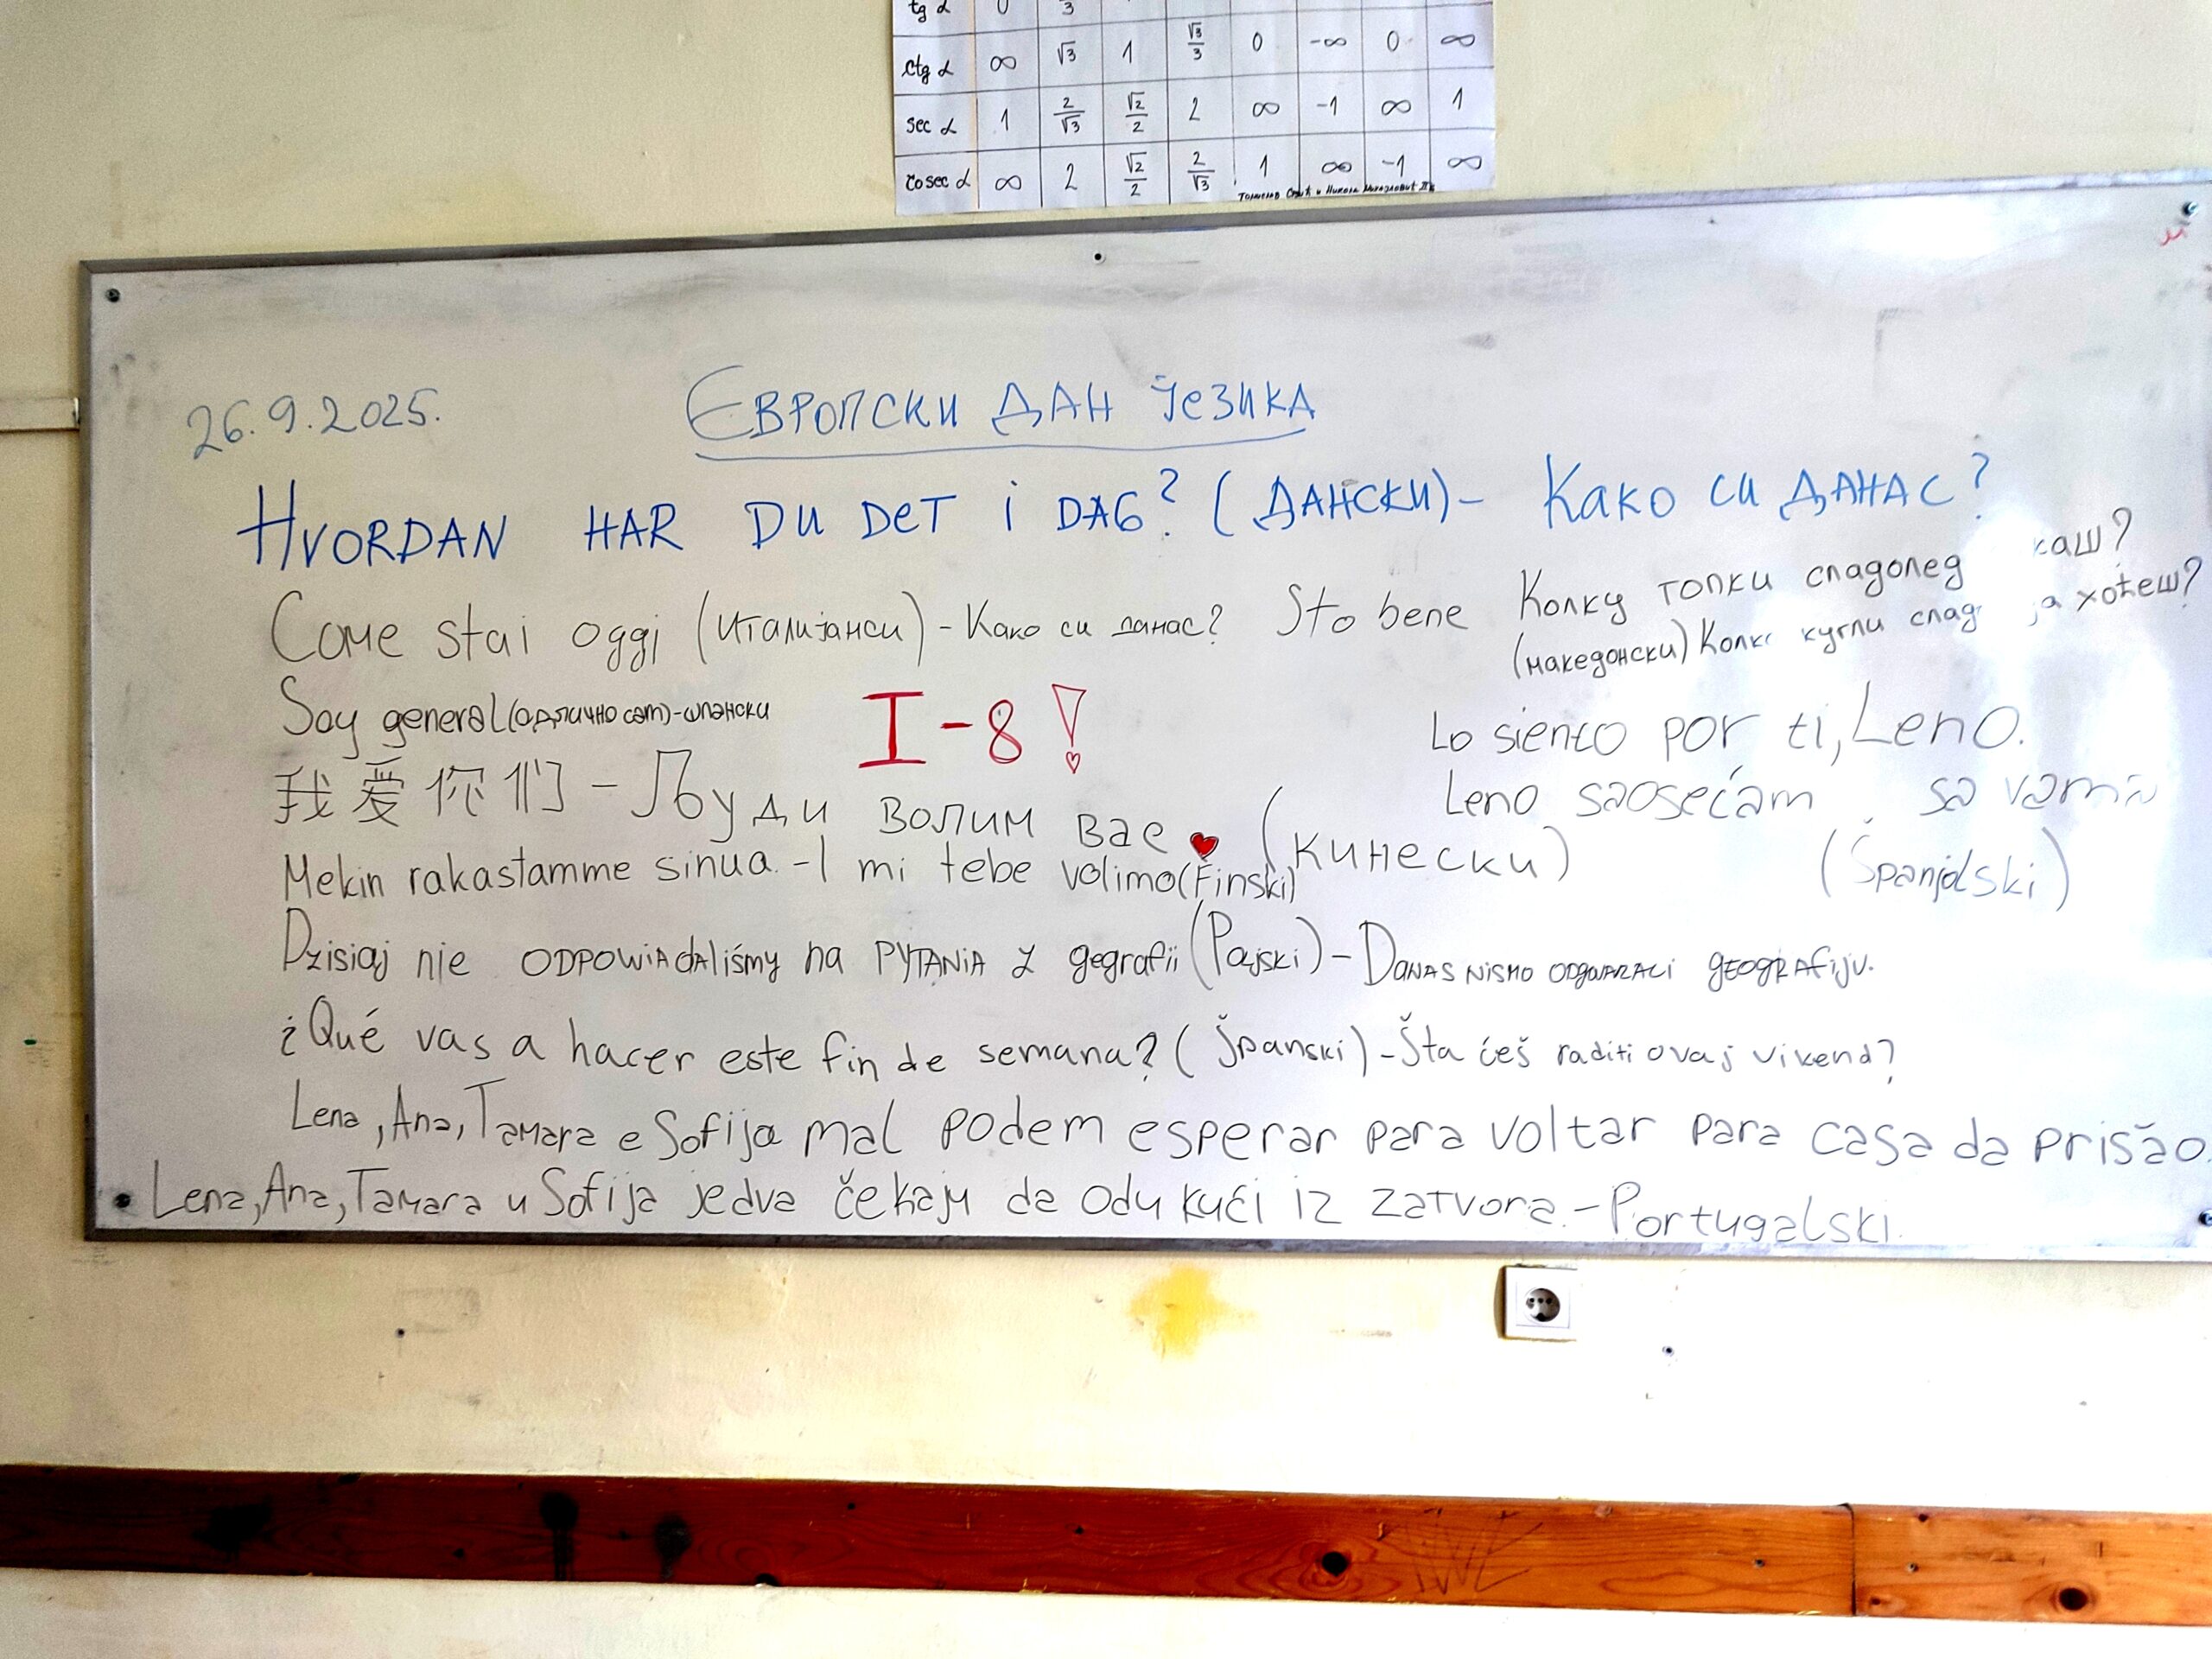 tg α 0 3
ctg α ∞ √3 1 √3/3 0 -∞ 0 ∞
sec α 1 2/√3 √2/2 2 ∞ -1 ∞ 1
cosec α ∞ 2 √2/2 2/√3 1 ∞ -1 ∞
26.9.2025.
ЕВРОПСКИ ДАН ЈЕЗИКА
HVORDAN HAR DU DET i DAG? (ДАНСКИ) - КАКО СИ ДАНАС?
Come stai oggi (италијанси) - Како си данас? Sto bene
Колку топки сладолед каш?
(македонски) Колко кугли слад ја хоћеш?
Soy general (одлично сам) - шпански
I - 8!
Lo siento por ti, Leno.
我爱你们 - Људи волим вас ♥ (кинески)
Leno saosećam sa vama
(Španjolski)
Mekin rakastamme sinua. - I mi tebe volimo (Finski)
Dzisiaj nie ODPOWiAdAliśmy na PYTANiA z gegrafii (Pojski) - DANAS NISMO ODgOVARALI gEOgRAfiju.
¿Qué vas a hacer este fin de semana? (Španski) - Šta ćeš raditi ovaj vikend?
Lena, Ana, Tamara e Sofija mal podem esperar para voltar para casa da prisão.
Lena, Ana, Tamara u Sofija jedva čekaju da odu kući iz zatvora. - Portugalski.